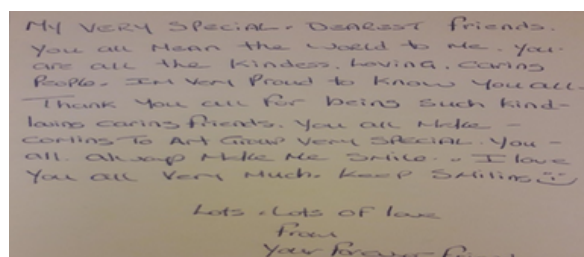 My VERY SPECIAL. DEAREST friends.
You all Mean the World to Me. You
are all the Kindess. Loving. caring
People. I'M Very Proud to Know you all-
Thank You all for being such kind-
loving caring friends. You all Make -
Coming To Art Group Very SPECIAL. You -
all. always Make Me Smile.. I love
You all Very Much. Keep Smiling
Lots. Lots of love
From
Your forever friend